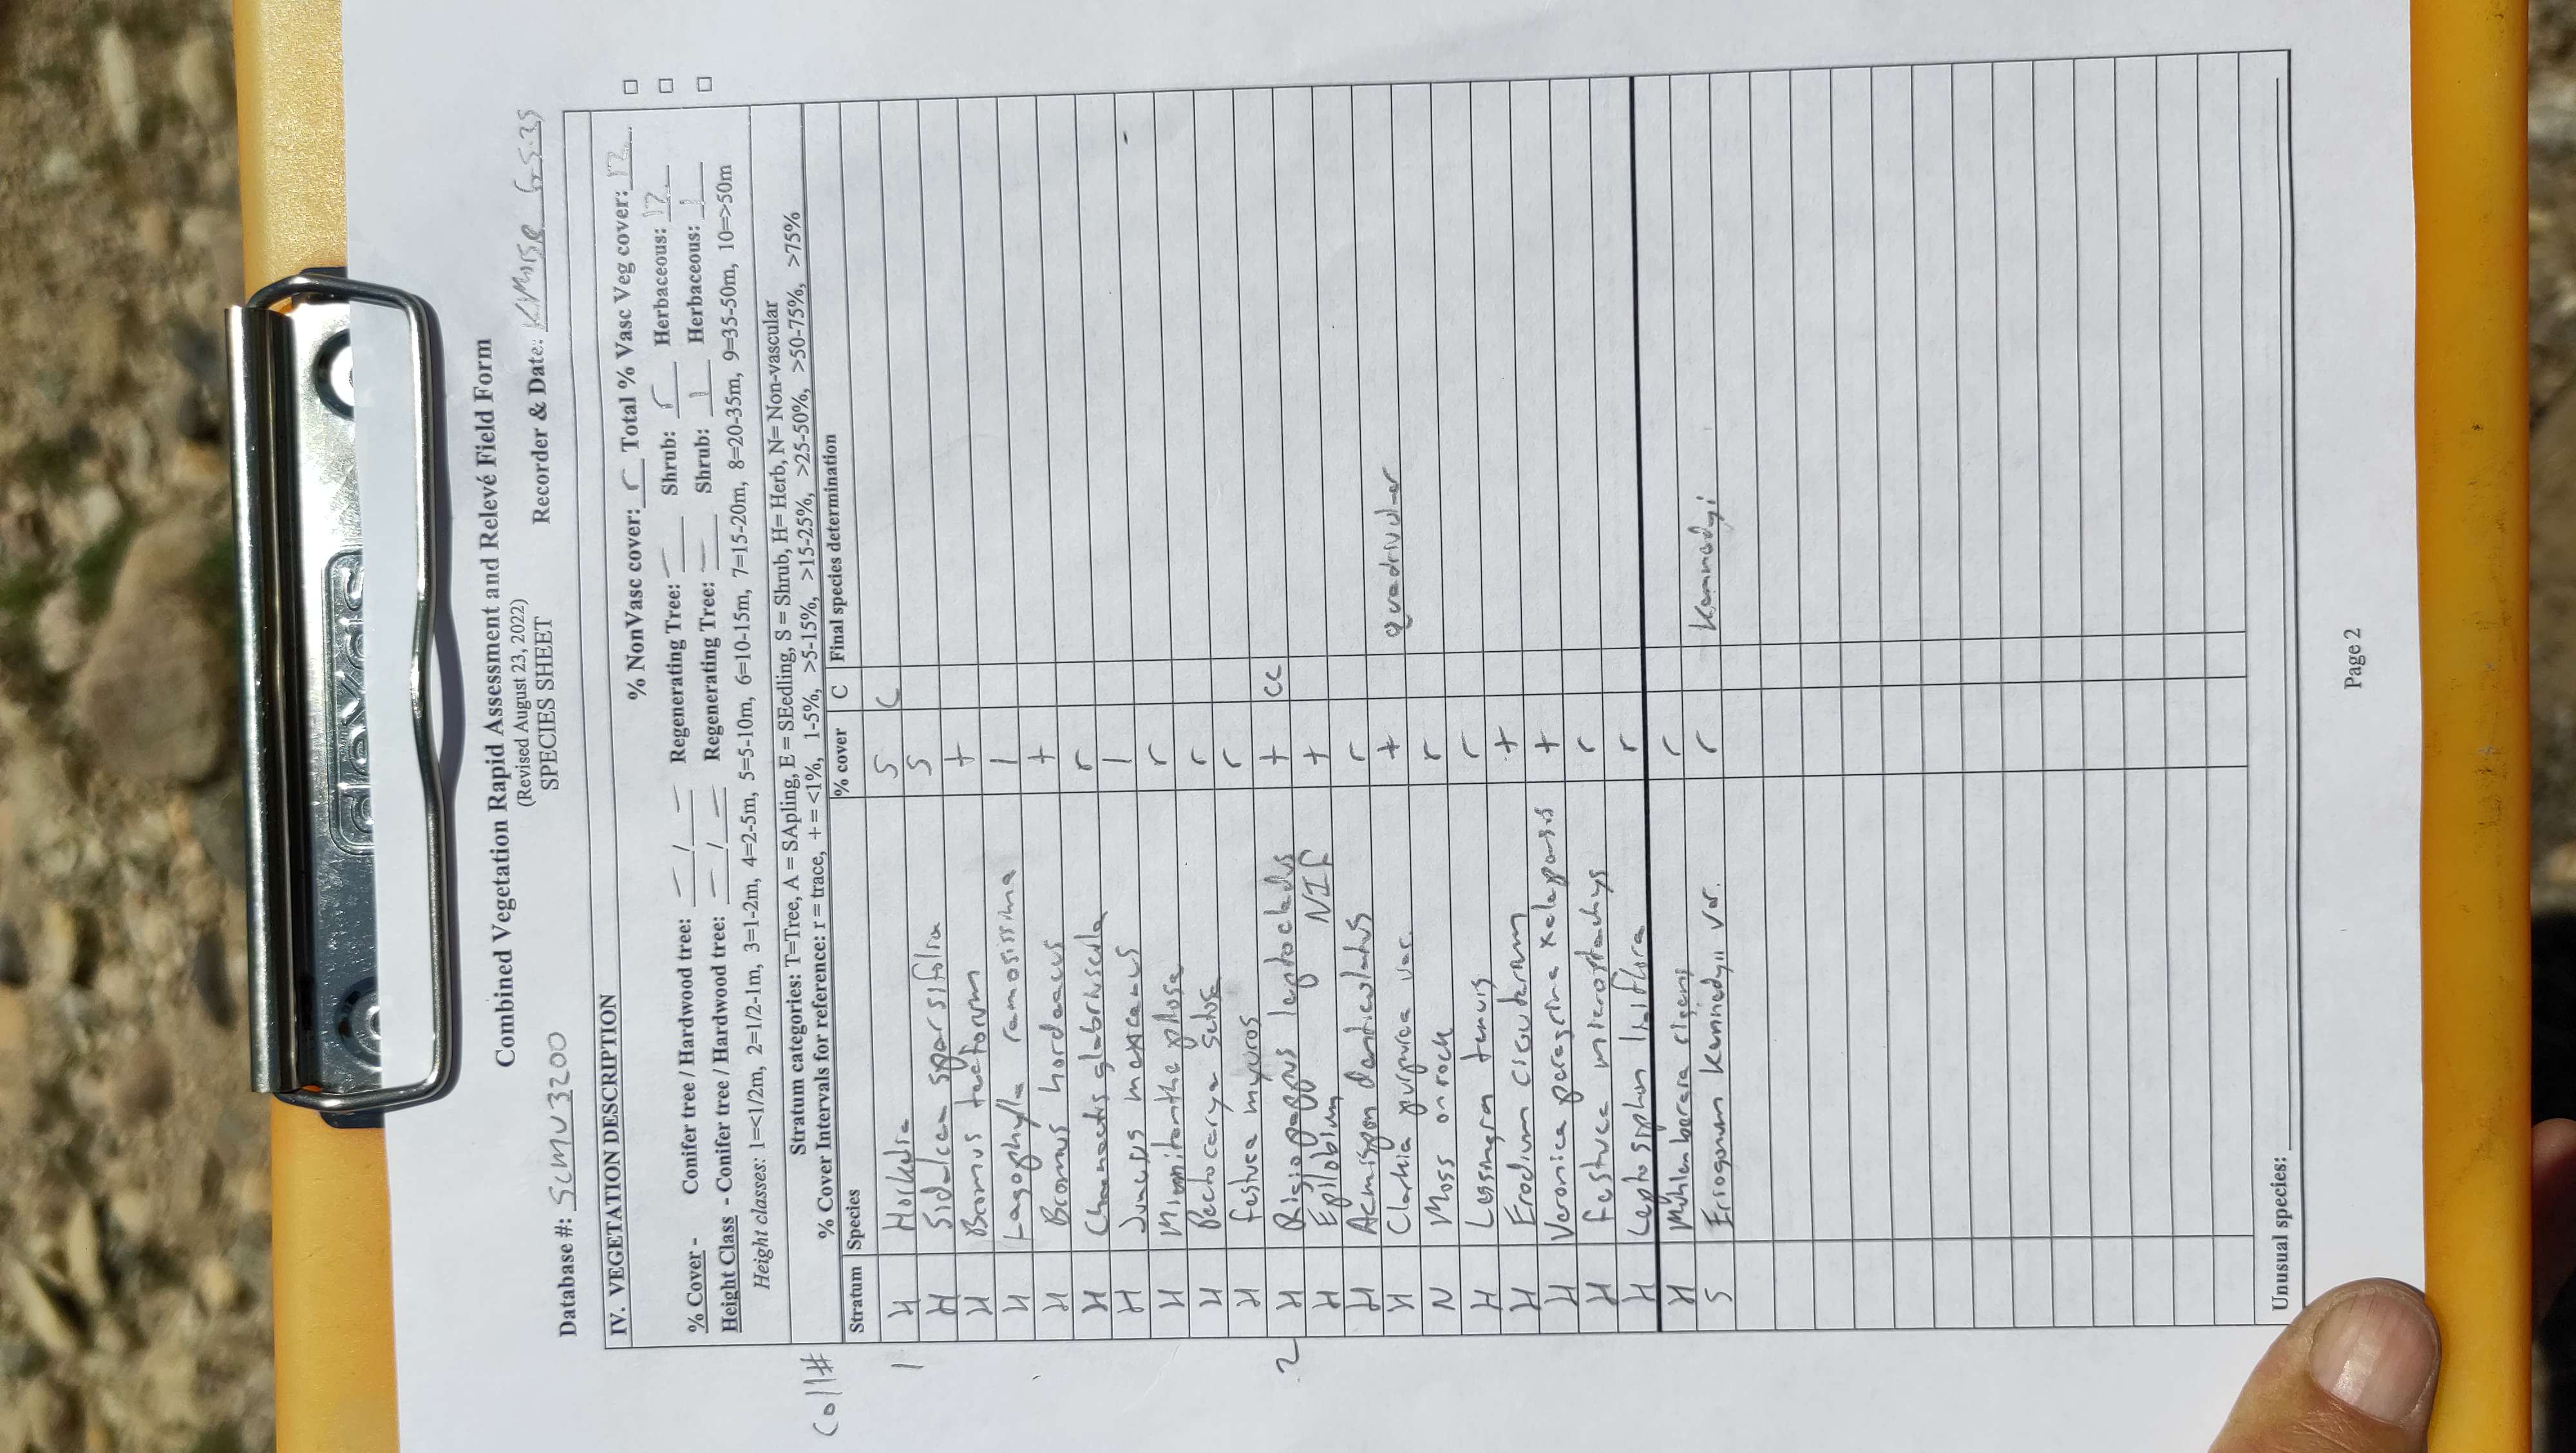 plexus
Combined Vegetation Rapid Assessment and Relevé Field Form
(Revised August 23, 2022)
SPECIES SHEET
Database #: SCMU3200 Recorder & Date:
IV. VEGETATION DESCRIPTION
% NonVasc cover: r Total % Vasc Veg cover: 12
% Cover - Conifer tree / Hardwood tree: — / — Regenerating Tree: — Shrub: r Herbaceous: 12
Height Class - Conifer tree / Hardwood tree: — / — Regenerating Tree: — Shrub: 1 Herbaceous: 1
Height classes: 1=<1/2m, 2=1/2-1m, 3=1-2m, 4=2-5m, 5=5-10m, 6=10-15m, 7=15-20m, 8=20-35m, 9=35-50m, 10=>50m
Stratum categories: T=Tree, A = SApling, E = SEedling, S = Shrub, H= Herb, N= Non-vascular
% Cover Intervals for reference: r = trace, + = <1%, 1-5%, >5-15%, >15-25%, >25-50%, >50-75%, >75%
Coll# Stratum Species % cover C Final species determination
1 H Horkelia 5 C
H Sidalcea sparsifolia 5
H Bromus tectorum +
H Lagophylla ramosissima 1
H Bromus hordeaceus +
H Chaenactis glabriuscula r
H Juncus mexicanus 1
H r
H Pectocarya setosa r
H Festuca myuros r
2 H Rigiopappus leptocladus + CC
H Epilobium NIF +
H Acmispon denticulatus r
H Clarkia purpurea var. +
N Moss on rock r
H Lessingia tenuis r
H Erodium cicutarium +
H Veronica peregrina xalapensis +
H Festuca microstachys r
H Leptosiphon liniflora r
H Muhlenbergia rigens r
S Eriogonum kennedyii var. r kennedyi
Unusual species:
Page 2